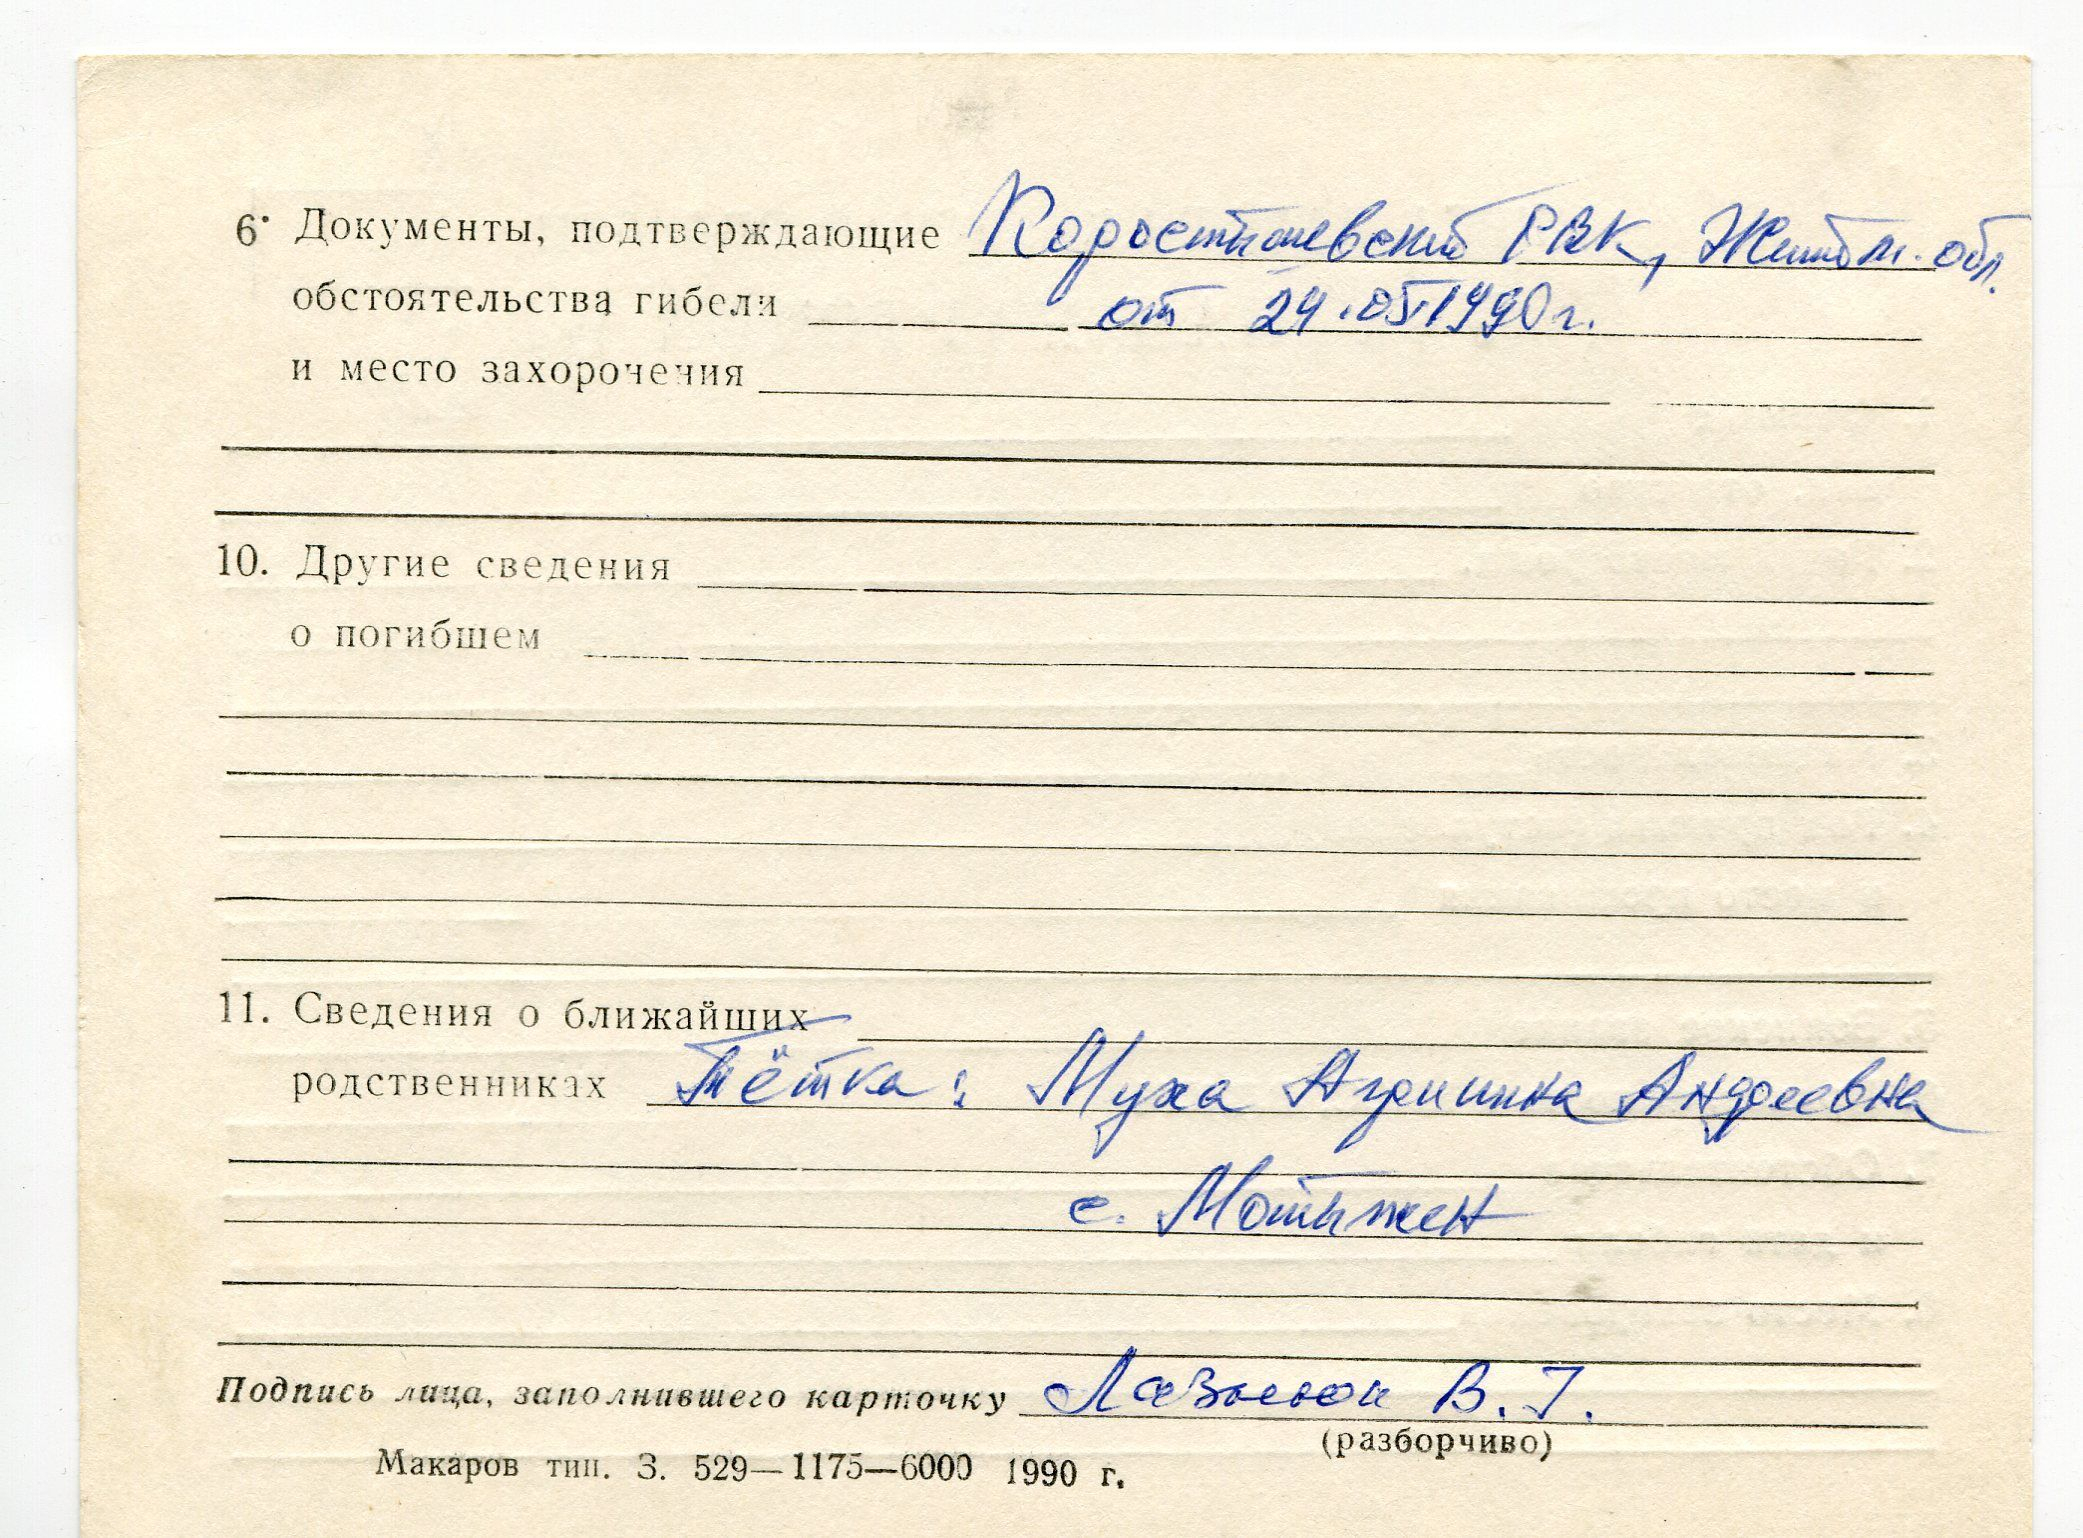 6. Документы, подтверждающие Коростышевский РВК, Житом. обл.
обстоятельства гибели от 24.05.1990 г.
и место захоронения
10. Другие сведения
о погибшем
11. Сведения о ближайших
родственниках Тётка: Муха Агрипина Андреевна
с. Мотыжен
Подпись лица, заполнившего карточку В. Г.
(разборчиво)
Макаров тип. З. 529—1175—6000 1990 г.